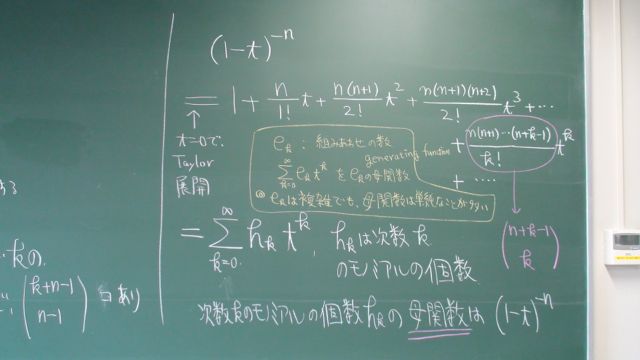 (1-t)^{-n}
= 1 + n/1! t + n(n+1)/2! t^2 + n(n+1)(n+2)/2! t^3 + …
+ n(n+1)…(n+k-1)/k! t^k
+ ….
t=0で
Taylor
展開
e_k : 組みあわせの数
generating function
∑_{k=0}^{∞} e_k t^k を e_kの母関数
◎ e_kは複雑でも、母関数は単純なことが多い
(n+k-1 k)
= ∑_{k=0}^{∞} h_k t^k, h_kは次数k
のモノミアルの個数
次数kのモノミアルの個数 h_kの母関数は (1-t)^{-n}
kの.
(k+n-1 n-1) コあり